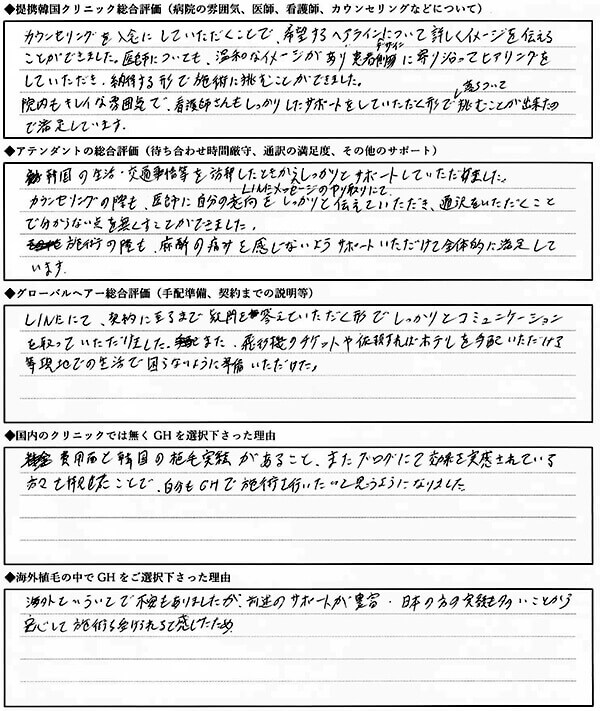 ◆提携韓国クリニック総合評価（病院の雰囲気、医師、看護師、カウンセリングなどについて）
カウンセリングを入念にしていただくことで、希望するヘアラインについて詳しくイメージを伝える
ことができました。医師についても、温和なイメージがあり患者側に寄り沿ってヒアリングを
デザイン
していただき、納得する形で施術に挑むことができました。
院内もキレイな雰囲気で、看護師さんもしっかりしたサポートをしていただく形で挑むことが出来たの
落ちついて
で満足しています。
◆アテンダントの総合評価（待ち合わせ時間厳守、通訳の満足度、その他のサポート）
韓国の生活・交通事情等を訪韓したときからしっかりとサポートしていただけました。
LINEメッセージのやり取りにて
カウンセリングの際も、医師に自分の意向をしっかりと伝えていただき、通訳をいただくこと
で分からない点を無くすことができました。
施術の際も、麻酔の痛みを感じないようサポートいただけて全体的に満足して
います。
◆グローバルヘアー総合評価（手配準備、契約までの説明等）
LINEにて、契約に至るまで質問を答えていただく形でしっかりとコミュニケーション
を取っていただけました。また、飛行機のチケットや依頼すればホテルを手配いただける
等現地での生活で困らないように準備いただけた。
◆国内のクリニックでは無くGHを選択下さった理由
費用面と韓国の植毛実績があること、またブログにて効果を実感されている
方々を拝見したことで、自分もGHで施術を行いたいと思うようになりました。
◆海外植毛の中でGHをご選択下さった理由
海外ということで不安もありましたが、前述のサポートが豊富・日本の方の実績も多いことから
安心して施術を受けられると感じたため